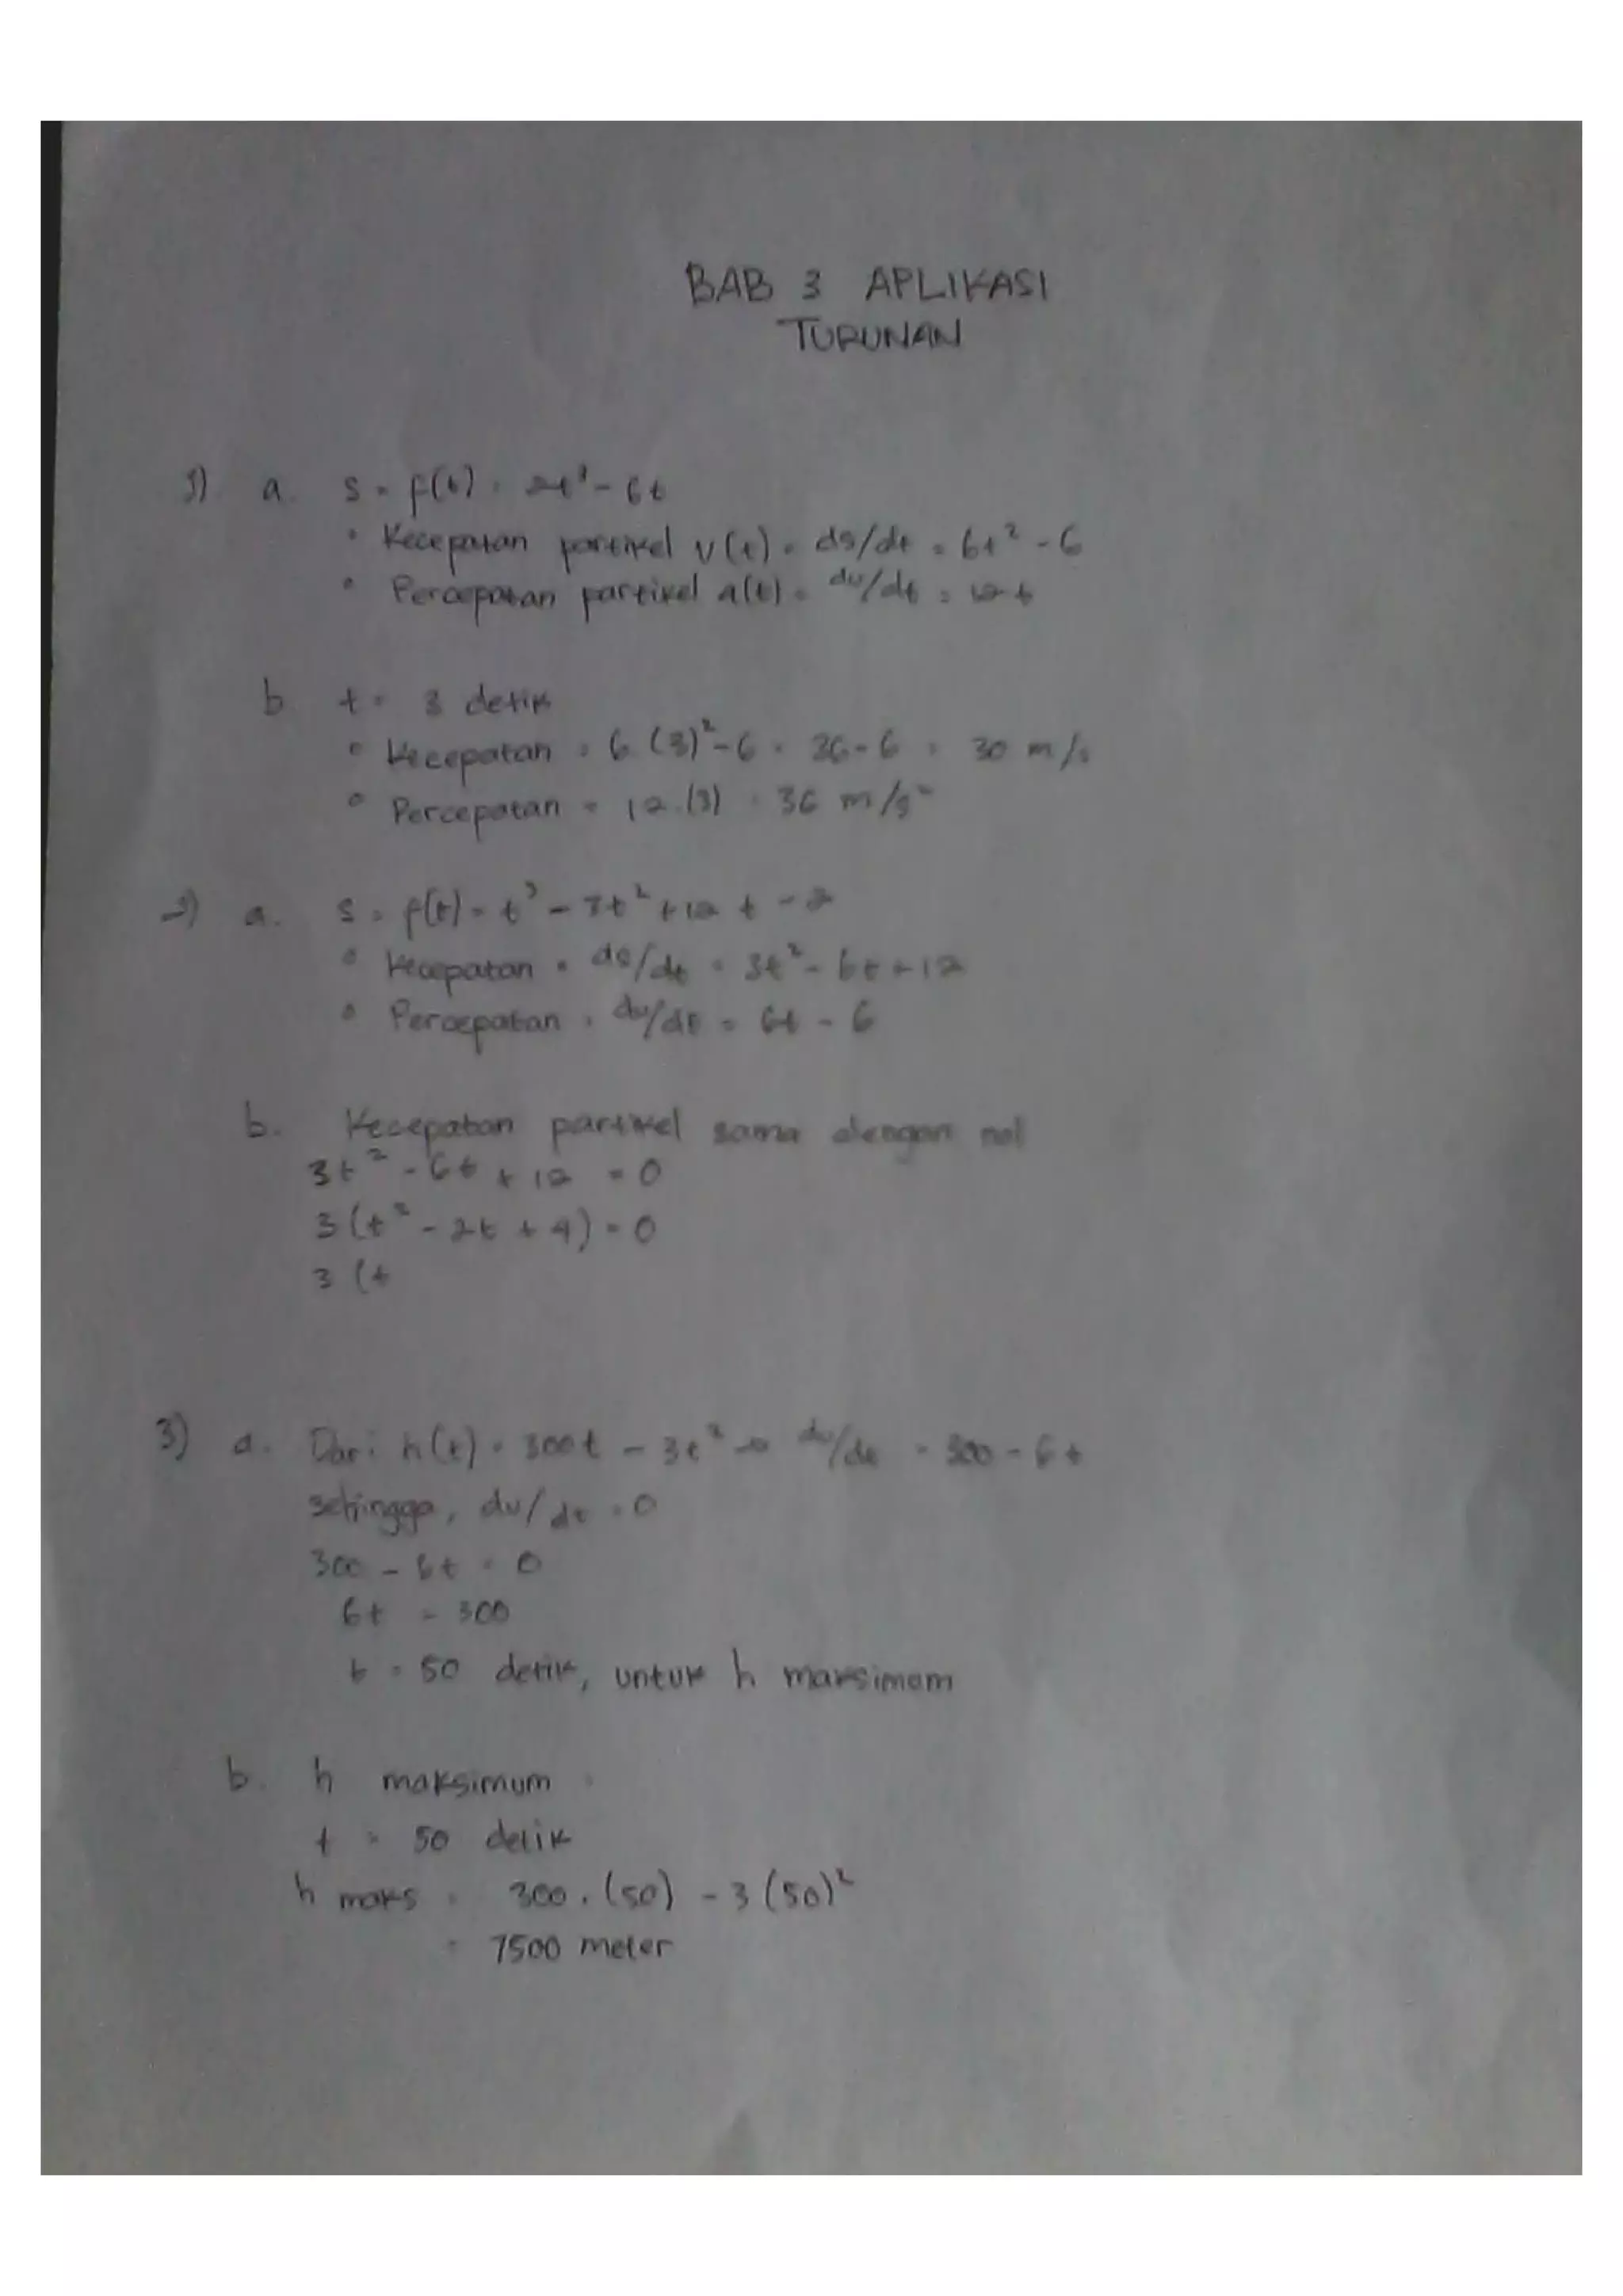 BAB 3 APLIKASI
TURUNAN
1) a. s = f(t) = 2t³ - 6t
° Kecepatan partikel v(t) = ds/dt = 6t² - 6
° Percepatan partikel a(t) = dv/dt = 12t
b. t = 3 detik
° Kecepatan = 6.(3)² - 6 = 36 - 6 = 30 m/s
° Percepatan = 12.(3) = 36 m/s²
2) a. s = f(t) = t³ - 3t² + 12t - 2
° Kecepatan = ds/dt = 3t² - 6t + 12
° Percepatan = dv/dt = 6t - 6
b. Kecepatan partikel sama dengan nol
3t² - 6t + 12 = 0
3(t² - 2t + 4) = 0
3 (t
3) a. Dari h(t) = 300t - 3t² → dv/dt = 300 - 6t
sehingga, dv/dt = 0
300 - 6t = 0
6t = 300
t = 50 detik, untuk h maksimum
b. h maksimum =
t = 50 detik
h maks = 300.(50) - 3(50)²
= 7500 meter